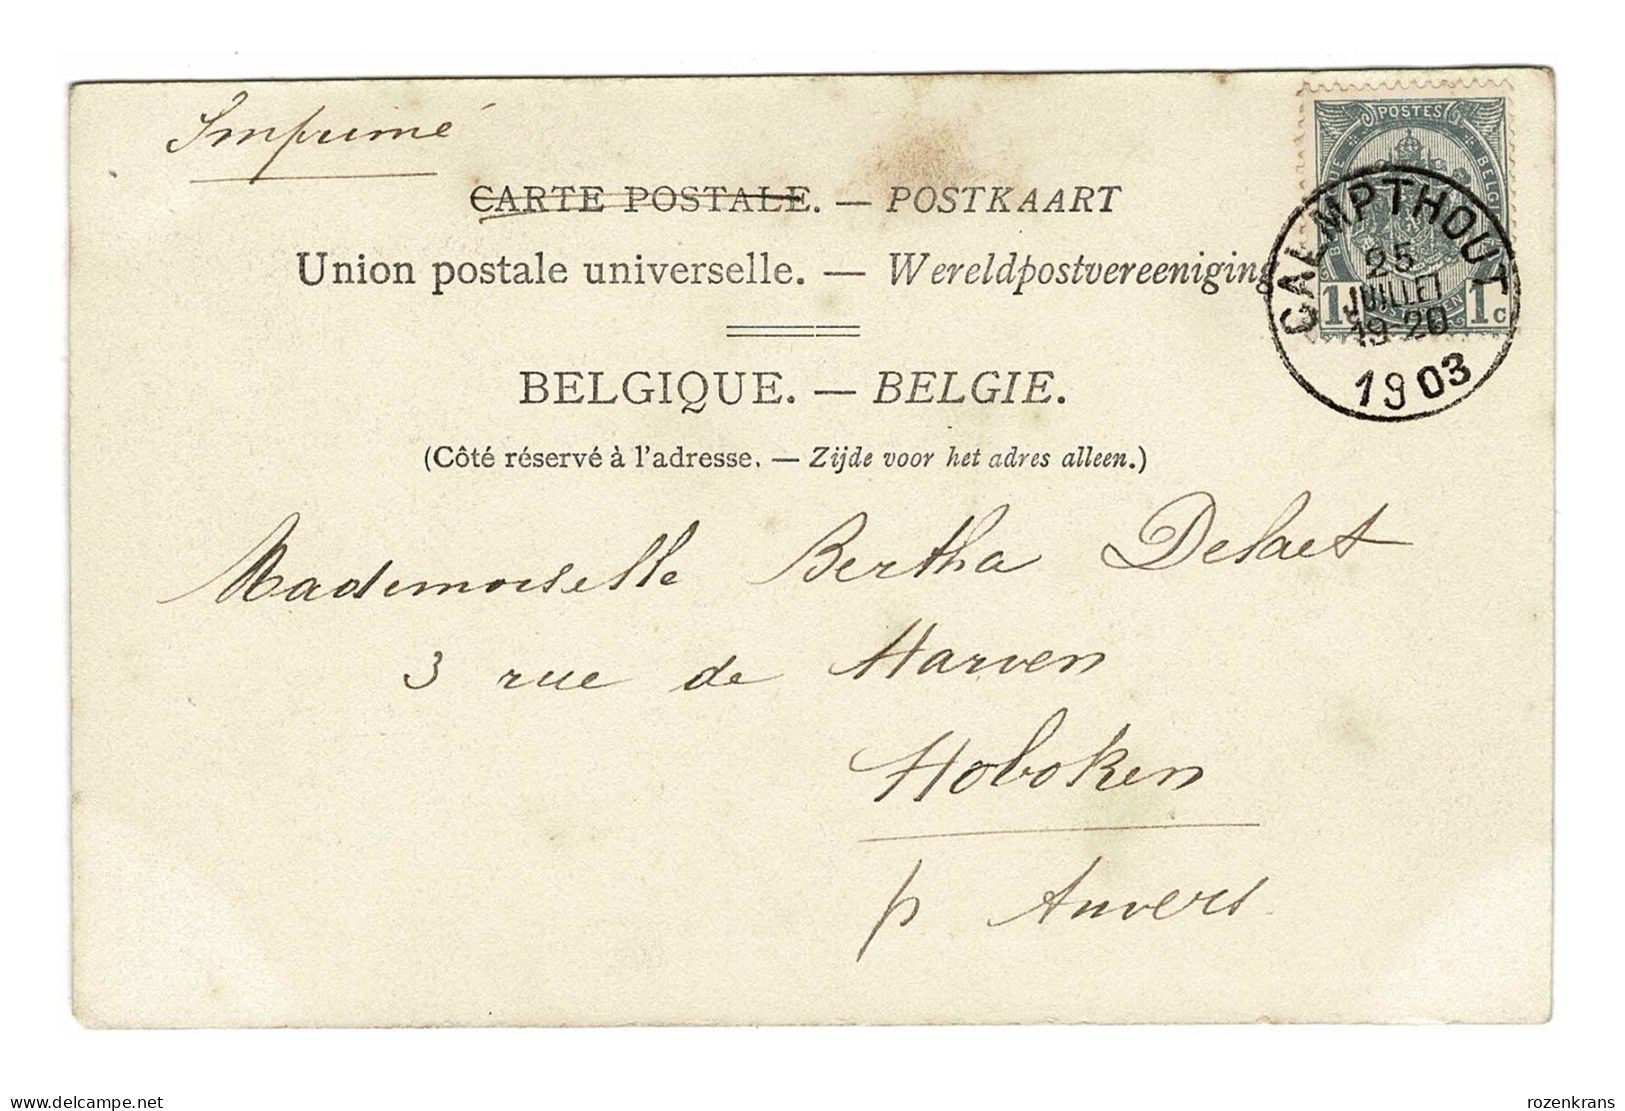 Imprimé
CARTE POSTALE. — POSTKAART
Union postale universelle. — Wereldpostvereeniging
BELGIQUE. — BELGIE.
(Côté réservé à l'adresse. — Zijde voor het adres alleen.)
POSTES
BELGIQUE
1c 1c
CALMPTHOUT
25
JUILLET
19-20
1903
Mademoiselle Bertha Delaet
3 rue de Marven
Hoboken
p Anvers
delcampe.net
rozenkrans